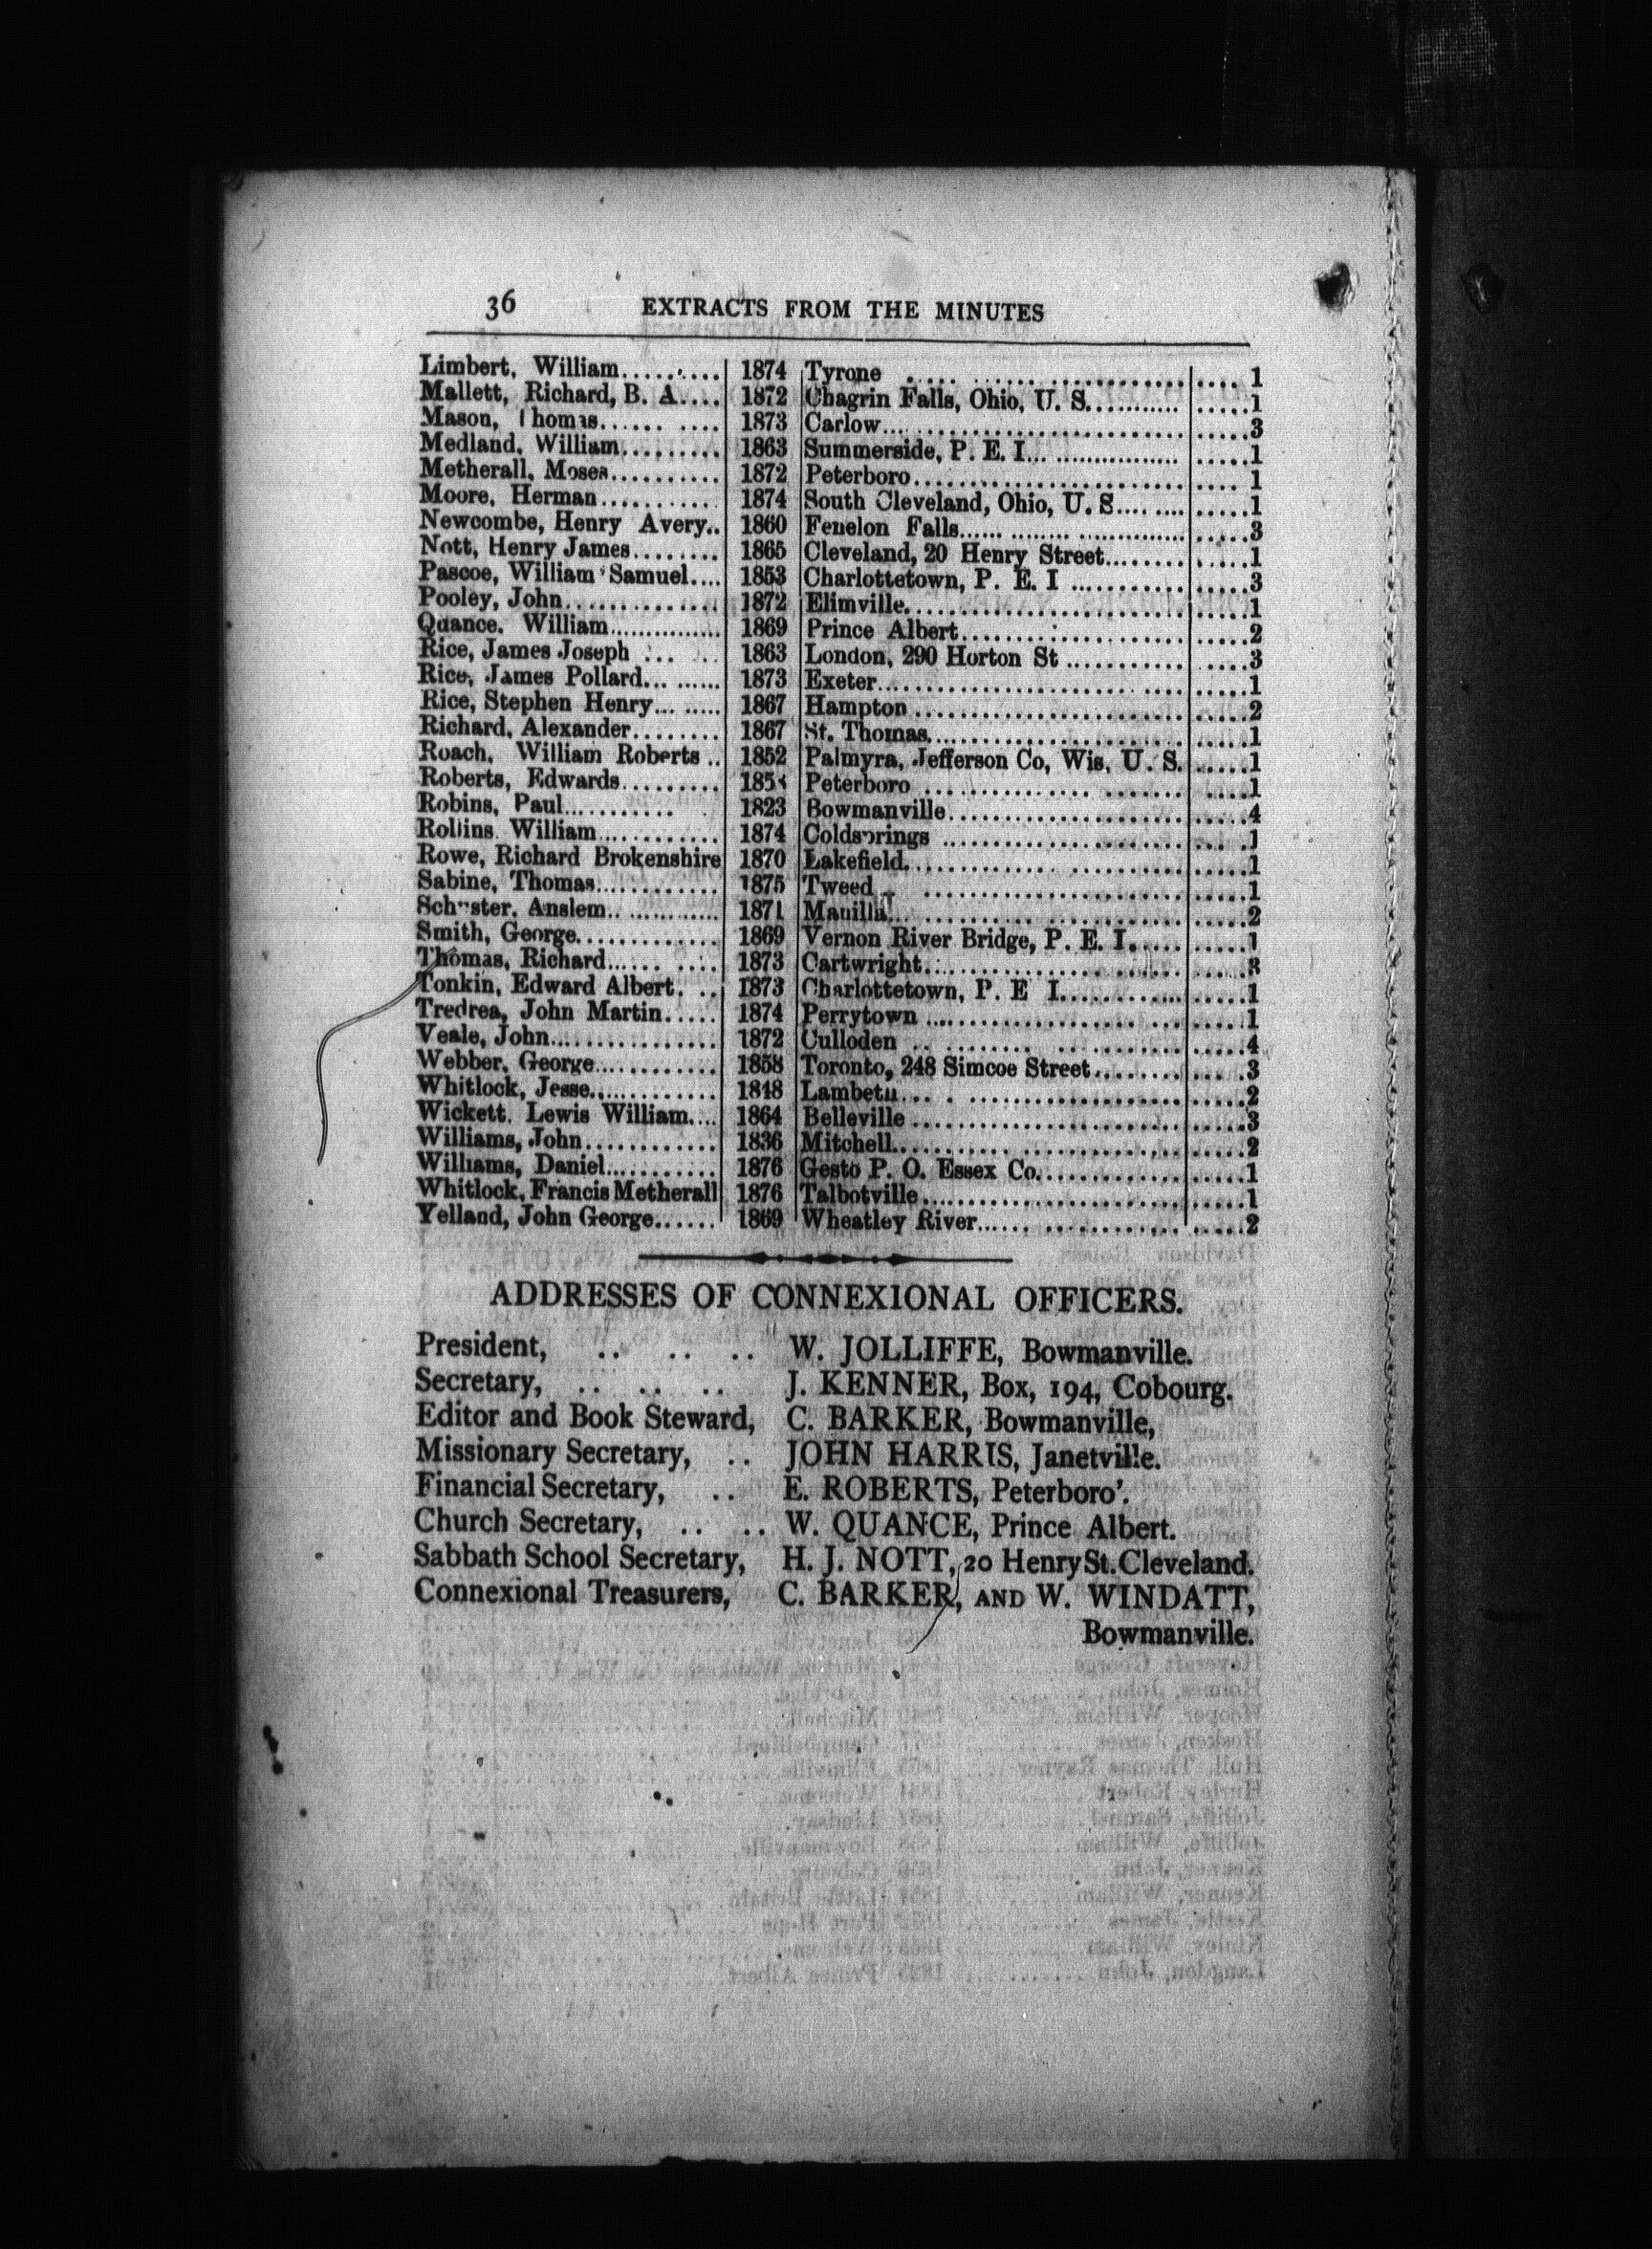 36 EXTRACTS FROM THE MINUTES
Limbert, William.......... 1874 Tyrone .... 1
Mallett, Richard, B. A.... 1872 Chagrin Falls, Ohio, U. S. .....1
Mason, Thomas...... .... 1873 Carlow... .....3
Medland, William......... 1863 Summerside, P. E. I... .....1
Metherall, Moses.......... 1872 Peterboro .... 1
Moore, Herman........... 1874 South Cleveland, Ohio, U. S.... .....1
Newcombe, Henry Avery.. 1860 Fenelon Falls...... .....3
Nott, Henry James........ 1865 Cleveland, 20 Henry Street........ .....1
Pascoe, William Samuel.... 1853 Charlottetown, P. E. I ........... .....3
Pooley, John.............. 1872 Elimville. .....1
Quance. William............... 1869 Prince Albert .....2
Rice, James Joseph ... .. 1863 London, 290 Horton St ........... .....3
Rice, James Pollard... ...... 1873 Exeter... .....1
Rice, Stephen Henry... ..... 1867 Hampton .....2
Richard, Alexander........ 1867 St. Thomas. .....1
Roach, William Roberts .. 1852 Palmyra, Jefferson Co, Wis, U. S. .....1
Roberts, Edwards......... Peterboro ....1
Robins, Paul........... 1823 Bowmanville .....4
Rollins William............ 1874 Coldsprings .... .1
Rowe, Richard Brokenshire 1870 Lakefield. .....1
Sabine, Thomas............ 1875 Tweed .....1
Anslem.. ............ 1871 Manilla .....2
Smith, George............. 1869 Vernon River Bridge, P. E. I...... .....1
Thomas, Richard...... .... 1873 Cartwright .....3
Tonkin, Edward Albert. .. 1873 Charlottetown, P. E I............ .....1
Tredrea, John Martin..... 1874 Perrytown .....1
Veale, John................ 1872 Culloden .....4
Webber, George............ 1858 Toronto, 248 Simcoe Street........ .... .3
Whitlock, Jesse............. 1848 Lambeth .....2
Wickett. Lewis William.... 1864 Belleville .....3
Williams, John............ 1836 Mitchell. .....2
Williams, Daniel........... 1876 Gesto P. O. Essex Co. .....1
Whitlock, Francis Metherall 1876 Talbotville .....1
Yelland, John George...... 1869 Wheatley River...... .....2
ADDRESSES OF CONNEXIONAL OFFICERS.
President, .. .. .. W. JOLLIFFE, Bowmanville.
Secretary, .. .. .. J. KENNER, Box, 194, Cobourg.
Editor and Book Steward, C. BARKER, Bowmanville,
Missionary Secretary, .. JOHN HARRIS, Janetville.
Financial Secretary, .. E. ROBERTS, Peterboro'.
Church Secretary, .. .. W. QUANCE, Prince Albert.
Sabbath School Secretary, H. J. NOTT, 20 Henry St. Cleveland.
Connexional Treasurers, C. BARKER, AND W. WINDATT,
Bowmanville.